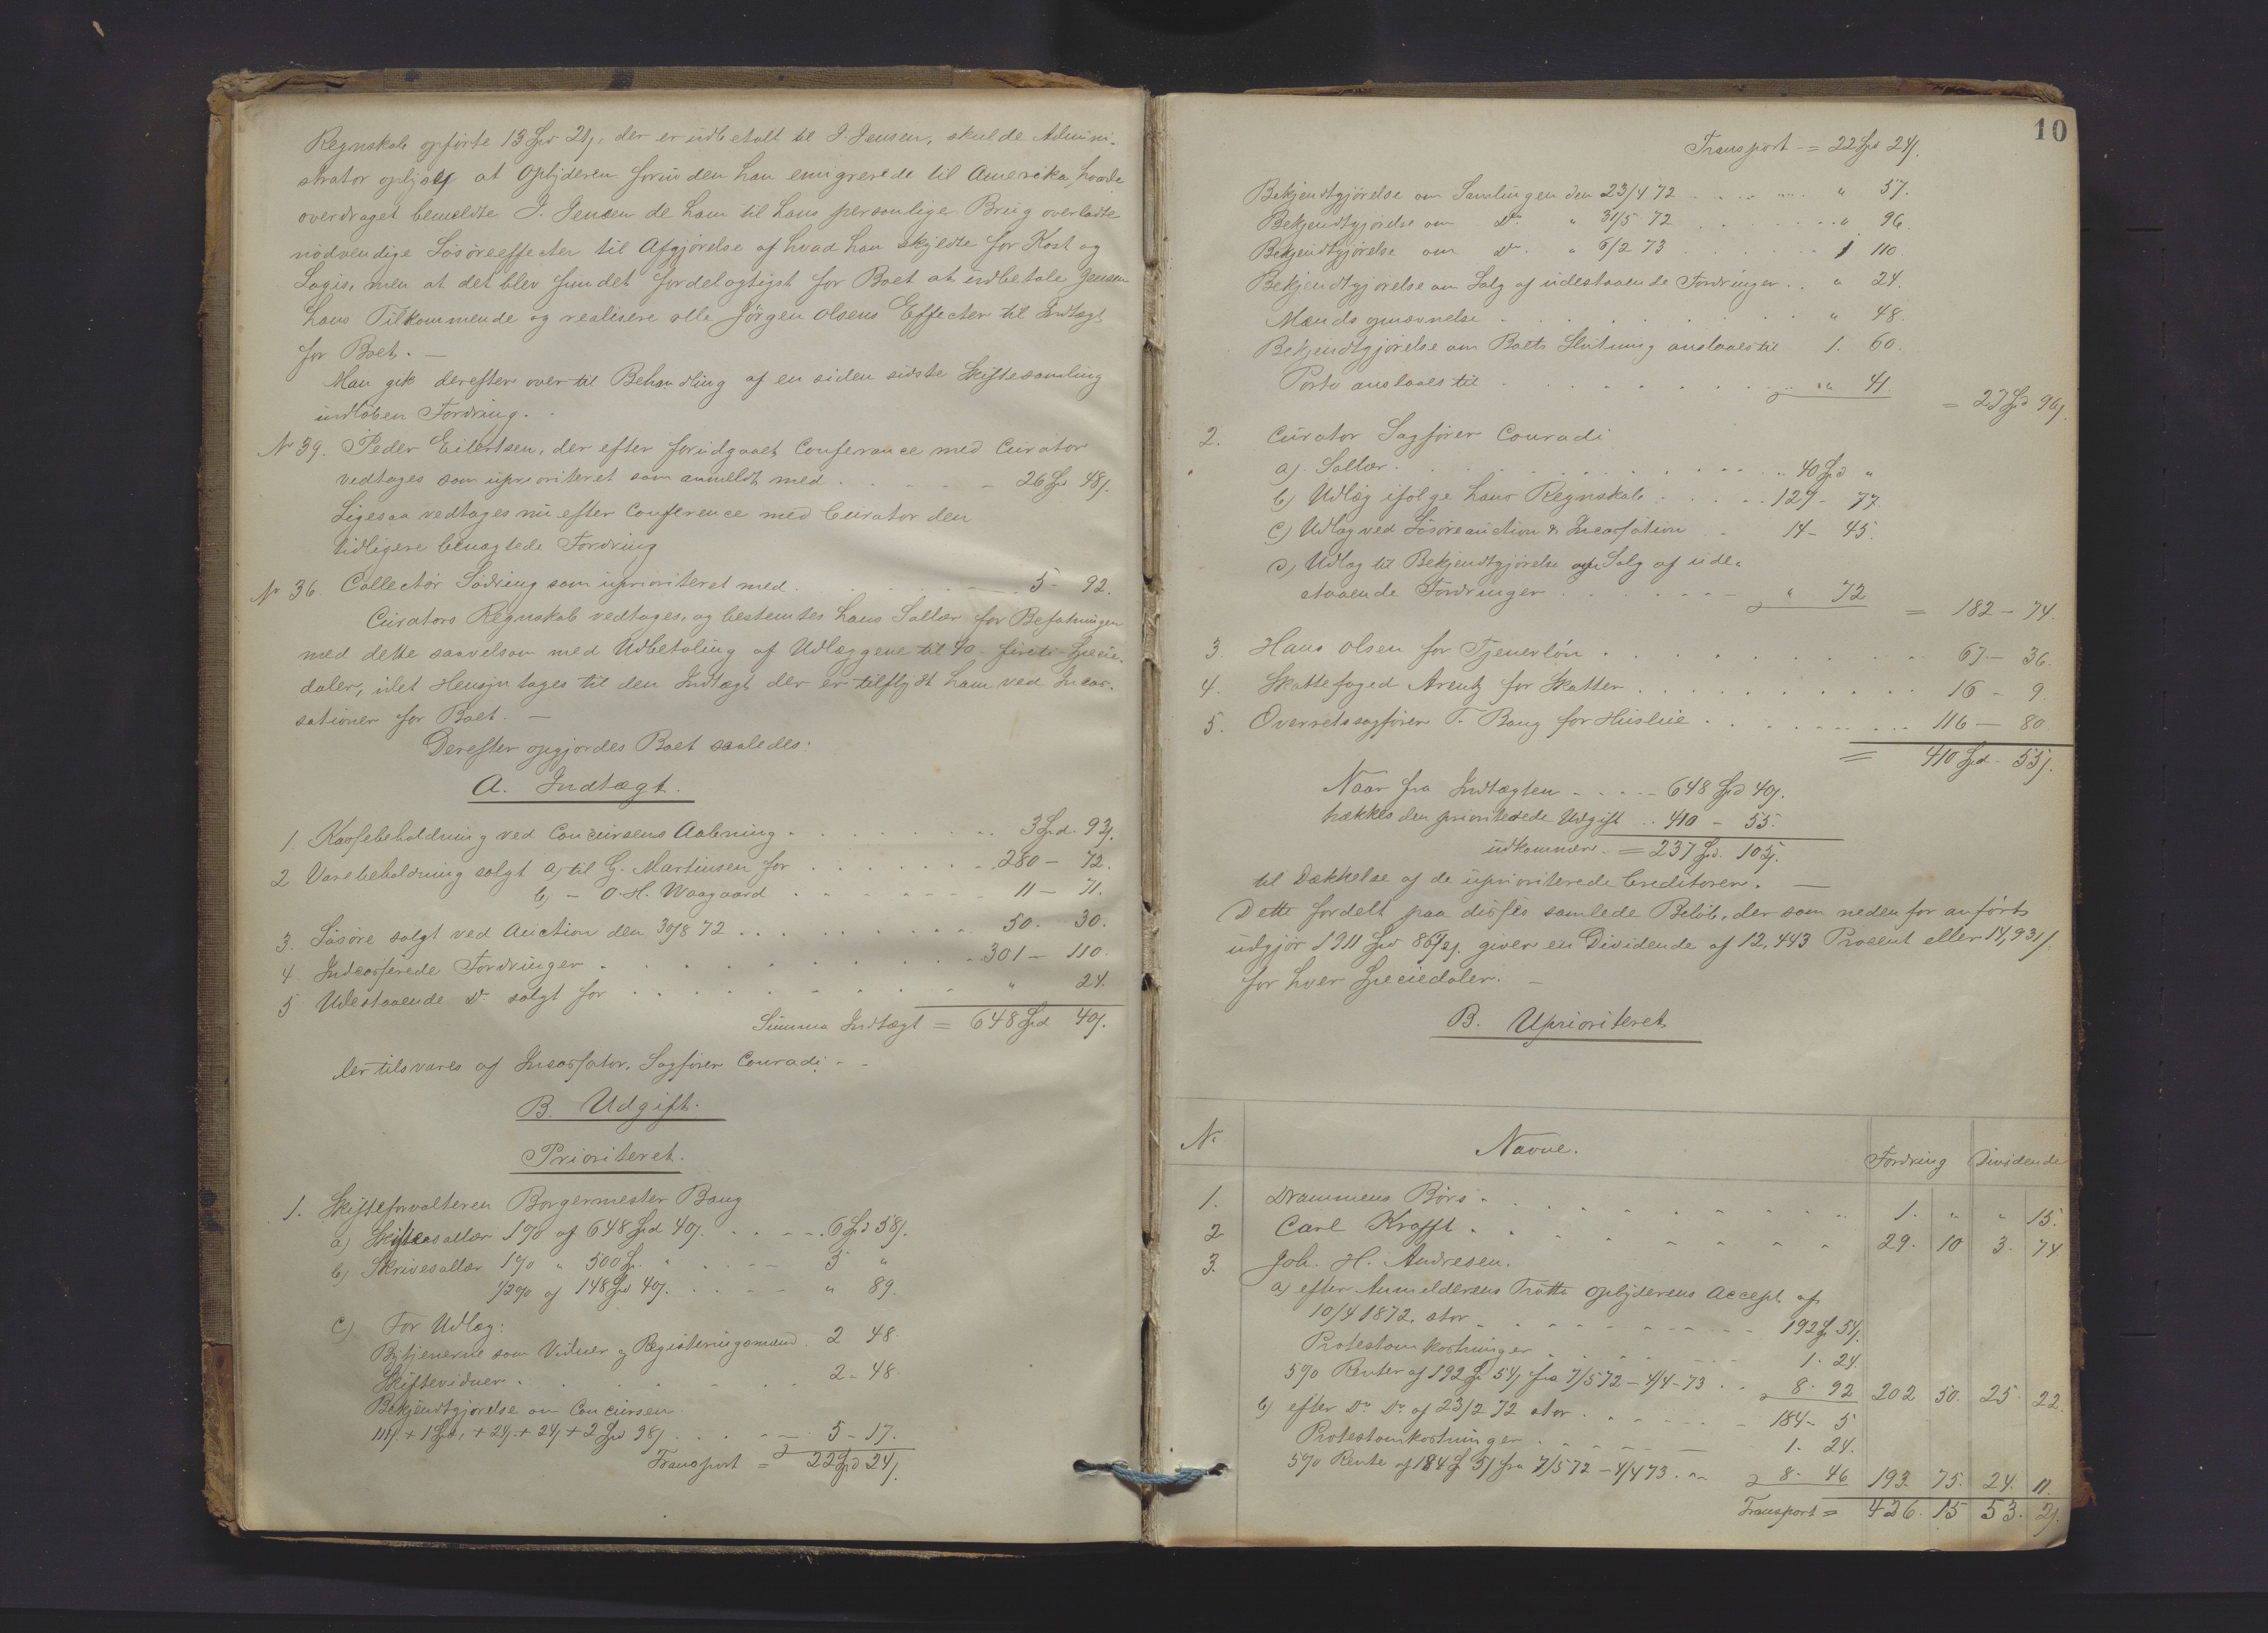 Regnskab opførte 13 Spd 21 ß, der er udbetalt til J. Jensen, skulde Admini-
strator oplyse at Opbyderen forinden han emigrerede til Amerika havde
overdraget bemeldte J. Jensen de ham til hans personlige Brug overladte
nødvendige Løsøreeffecter til Afgjørelse af hvad han skyldte for Kost og
Logis, men at det blev fundet fordelagtigst for Boet at indbetale Jensen
hans Tilkommende og realisere alle Jörgen Olsens Effecter til Indtægt
for Boet. —
Man gik derefter over til Behandling af en siden sidste Skiftesamling
indløben Fordring.
No 39. Peder Eilertsen, der efter foridgaaet Conferance med Curator
vedtages som uprioriteret som anmeldt med . . . . 26 Spd 48 ß.
Ligesaa vedtages nu efter Conference med Curator den
tidligere benægtede Fordring
No 36. Collectør Södring som uprioriteret med . . . . 5 - 92.
Curators Regnskab vedtages, og bestemtes hans Sallær for Befatningen
med dette saavelsom med Udbetaling af Udlæggene til 40 - fireti - Specie-
daler, idet Hensyn tages til den Indtægt der er tilflydt ham ved Incas-
sationer for Boet. —
Derefter opgjordes Boet saaledes:
A. Indtægt.
1. Kassebeholdning ved Concursens Aabning . . . . 3 Spd. 93 ß.
2 Varebeholdning solgt a) til G. Martinsen for . . . . 280 - 72.
b) - O. H. Waagaard . . . . 11 - 71.
3. Løsøre solgt ved Auction den 30/8 72 . . . . 50. 30.
4. Indcasserede Fordringer . . . . 301 - 110.
5 Udestaaende Do solgt for . . . . " 24.
Summa Indtægt = 648 Spd 40 ß.
der tilsvares af Incassator, Sagfører Conradi. - -
B. Udgift.
Prioriteret.
1. Skifteforvalteren Borgermester Bang
a) Skiftesallær 1% af 648 Spd 40 ß. . . . . 6 Spd 58 ß.
b) Skrivesallær 1% " 500 Sp. " . . . . 5 "
1/2% af 148 Spd 40 ß. . . . . " 89.
c) For Udlæg:
Bytjenerne som Vidner og Registeringsmænd 2 48.
Skiftevidner . . . . 2 - 48.
Bekjendtgjørelse om Concursen
111 ß. + 1 Spd. + 24 ß. + 24 ß + 2 Spd 98 ß . . . . 5 - 17.
Transport = 22 Spd 24 ß.
10
Transport - = 22 Spd 24 ß.
Bekjendtgjørelse om Samlingen den 23/4 72 . . . . " 57.
Bekjendtgjørelse om Do " 31/5 72 . . . . " 96.
Bekjendtgjørelse om Do. " 6/2 73 . . . . 1 110.
Bekjendtgjørelse om Salg af udestaaende Fordringer . . " 24.
Mænds opnævnelse . . . . " 48.
Bekjendtgjørelse om Boets Slutning anslaaes til 1. 60.
Porto anslaaes til . . . . " 41
= 27 Spd 96 ß.
2. Curator Sagfører Conradi
a). Sallær . . . . 40 Spd "
b) Udlæg ifølge hans Regnskab . . . . 127 - 77.
c) Udlæg ved Løsøreauction & Incassation . . 14 - 45.
d) Udlæg til Bekjendtgjørelse om Salg af ude-
staaende Fordringer . . . . " 72
= 182 - 74.
3. Hans Olsen for Tjenerløn . . . . 67 - 36.
4. Skattefoged Arentz for Skatter . . . . 16 - 9.
5. Overretssagfører T. Bang for Husleie . . . . 116 - 80
= 410 Spd - 55 ß.
Naar fra Indtægten . . . . 648 Spd 40 ß.
trækkes den prioriterede Udgift . . 410 - 55.
udkommer. = 237 Spd. 105 ß.
til Dækkelse af de uprioriterede Creditorer. —
Dette fordelt paa disses samlede Beløb, der som nedenfor anført
udgjør 1911 Spd 86 1/2 ß. giver en Dividende af 12,443 Procent eller 14,931 ß
for hver Speciedaler. —
B. Uprioriteret
No Navne. Fordring Dividende
1. Drammens Börs . . . . 1. " " 15.
2 Carl Krafft . . . . 29. 10 3. 74.
3. Joh. H. Andresen.
a) efter Anmelderens Tratta Opbyderens Accept af
10/4 1872, stor . . . . 192 Sp 54 ß.
Protestomkostninger . . . . 1. 24.
5% Renter af 192 Sp 54 ß fra 7/5 72 - 4/4 - 73 . . 8. 92 202 50. 25. 22.
b) efter Do Do af 23/2 72 stor . . . . 184 - 5
Protestomkostninger . . . . 1. 24.
5% Rente af 184 Sp 5 ß fra 7/5 72 - 4/4 73 . . 8. 46 193. 75. 24. 11.
Transport = 426. 15 53. 2 ß.